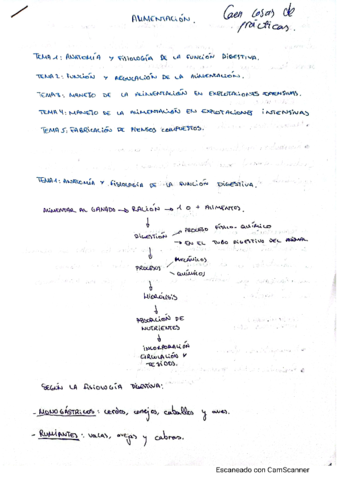 ALIMENTACIÓN.
Caen cosas de prácticas.
TEMA 1: ANATOMÍA Y FISIOLOGÍA DE LA FUNCIÓN DIGESTIVA.
TEMA 2: FUNCIÓN Y REGULACIÓN DE LA ALIMENTACIÓN.
TEMA 3: MANEJO DE LA ALIMENTACIÓN EN EXPLOTACIONES EXTENSIVAS.
TEMA 4: MANEJO DE LA ALIMENTACIÓN EN EXPLOTACIONES INTENSIVAS
TEMA 5: FABRICACIÓN DE PIENSOS COMPUESTOS.
TEMA 1: ANATOMÍA Y FISIOLOGÍA DE LA FUNCIÓN DIGESTIVA.
ALIMENTAR AL GANADO → RACIÓN → 1 O + ALIMENTOS.
↓
DIGESTIÓN → PROCESO FÍSICO-QUÍMICO
→ EN EL TUBO DIGESTIVO DEL ANIMAL
↓
PROCESOS → MECÁNICOS
→ QUÍMICOS
↓
HIDRÓLISIS
↓
ABSORCIÓN DE
NUTRIENTES
↓
INCORPORACIÓN
CIRCULACIÓN Y
TEJIDOS.
SEGÚN LA FISIOLOGÍA DIGESTIVA:
- MONOGÁSTRICOS: cerdos, conejos, caballos y aves.
- RUMIANTES: vacas, ovejas y cabras.
Escaneado con CamScanner